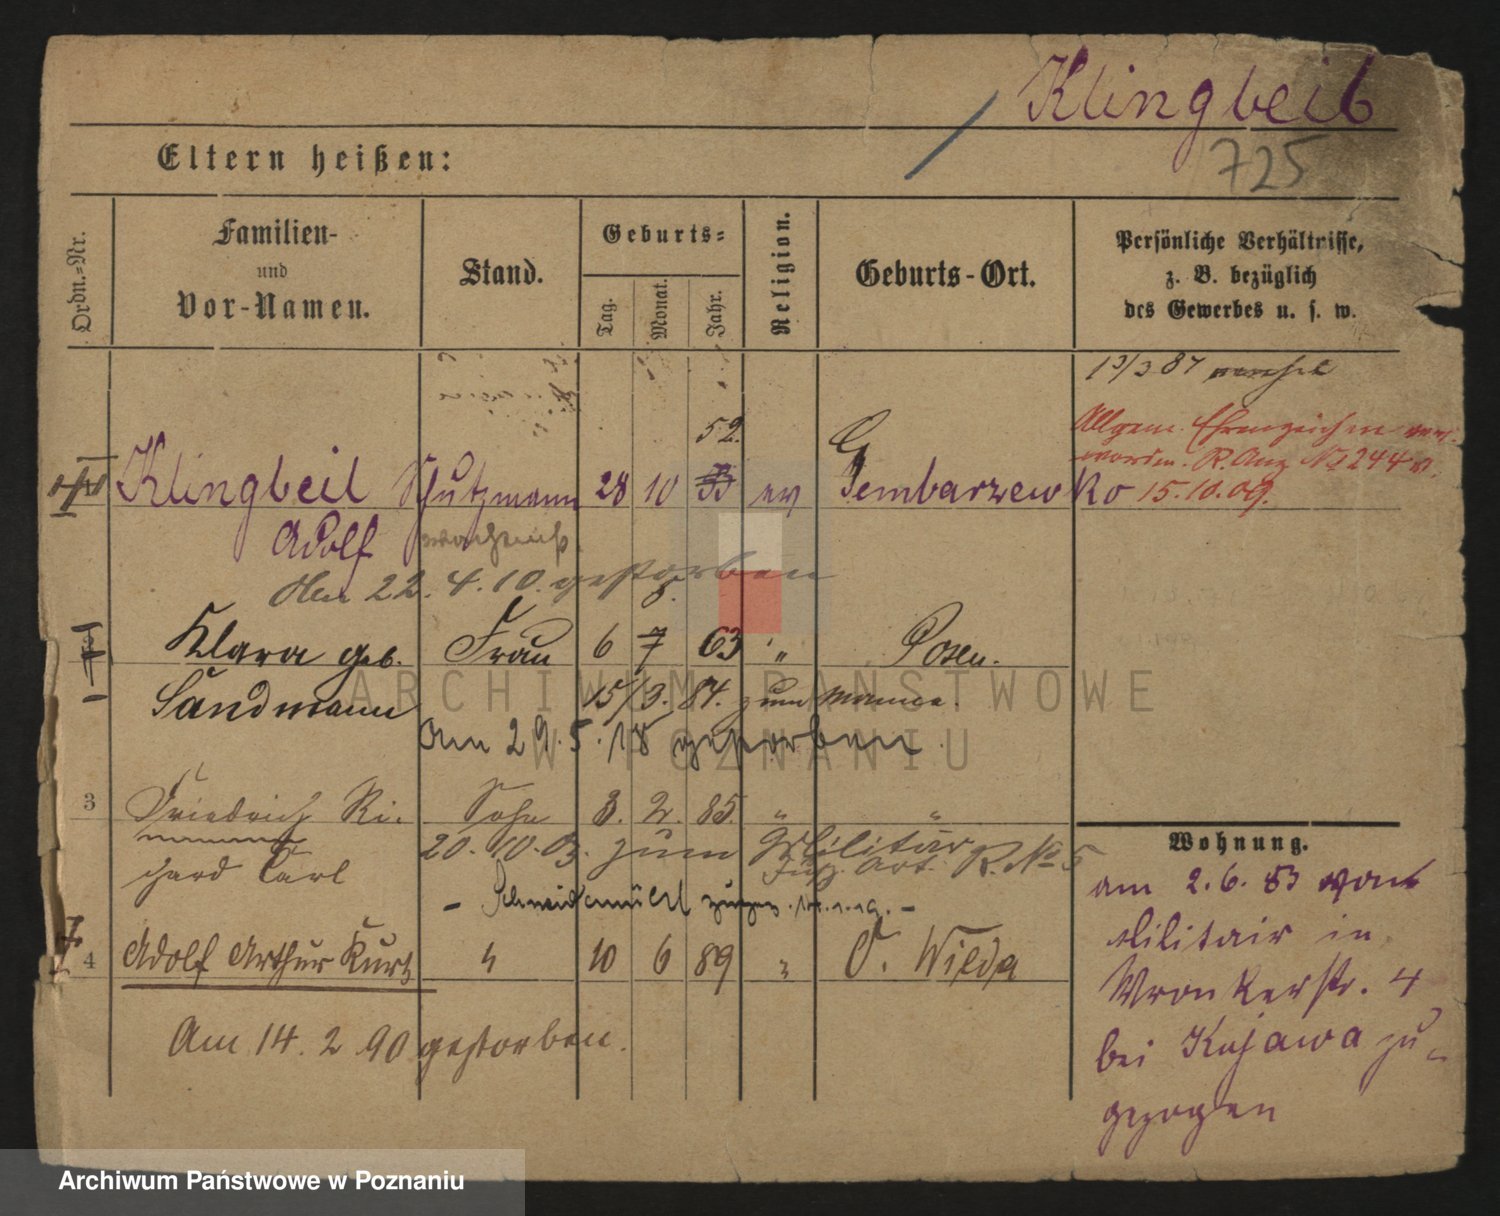 Klingbeil
725
Eltern heißen:
Ordn.=Nr.
Familien-
und
Vor-Namen.
Stand.
Geburts=
Tag.
Monat.
Jahr.
Religion.
Geburts-Ort.
Persönliche Verhältnisse,
z. B. bezüglich
des Gewerbes u. s. w.
13/3 87
Allgem. Ehrenzeichen
worden. R. Anz. No 244 v.
15.10.09.
52.
Klingbeil Schutzmann 28 10 53 ev Gembarzewko
Adolf
Den 22. 4. 10. gestorben
5.
Klara geb. Frau 6 7 63 " Posen.
Sandmann 15/3. 87. zum Manne.
Am 29. 5. 18 gestorben.
3 Friedrich Ri- Sohn 3. 2. 85. " "
chard Carl
20. 10. 03. zum Militär
Fuß. Art. R. No 5
- Schneidemühl zugez. 14.1.19. -
4 Adolf Arthur Kurt " 10 6 89 " O. Wilda
Am 14. 2 90 gestorben.
Wohnung.
am 2. 6. 83 vom
Militair in
Wronkerstr. 4
bei Kujawa zu-
gezogen
ARCHIWUM PAŃSTWOWE
W POZNANIU
Archiwum Państwowe w Poznaniu